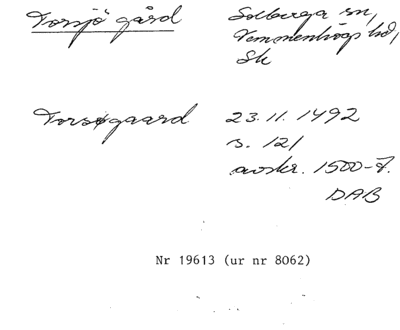 Torsjö gård
Solberga sn,
Vemmenhögs hd,
Sk
Torsøgaard
23.11.1492
s. 121
avskr. 1500-t.
DAB
Nr 19613 (ur nr 8062)